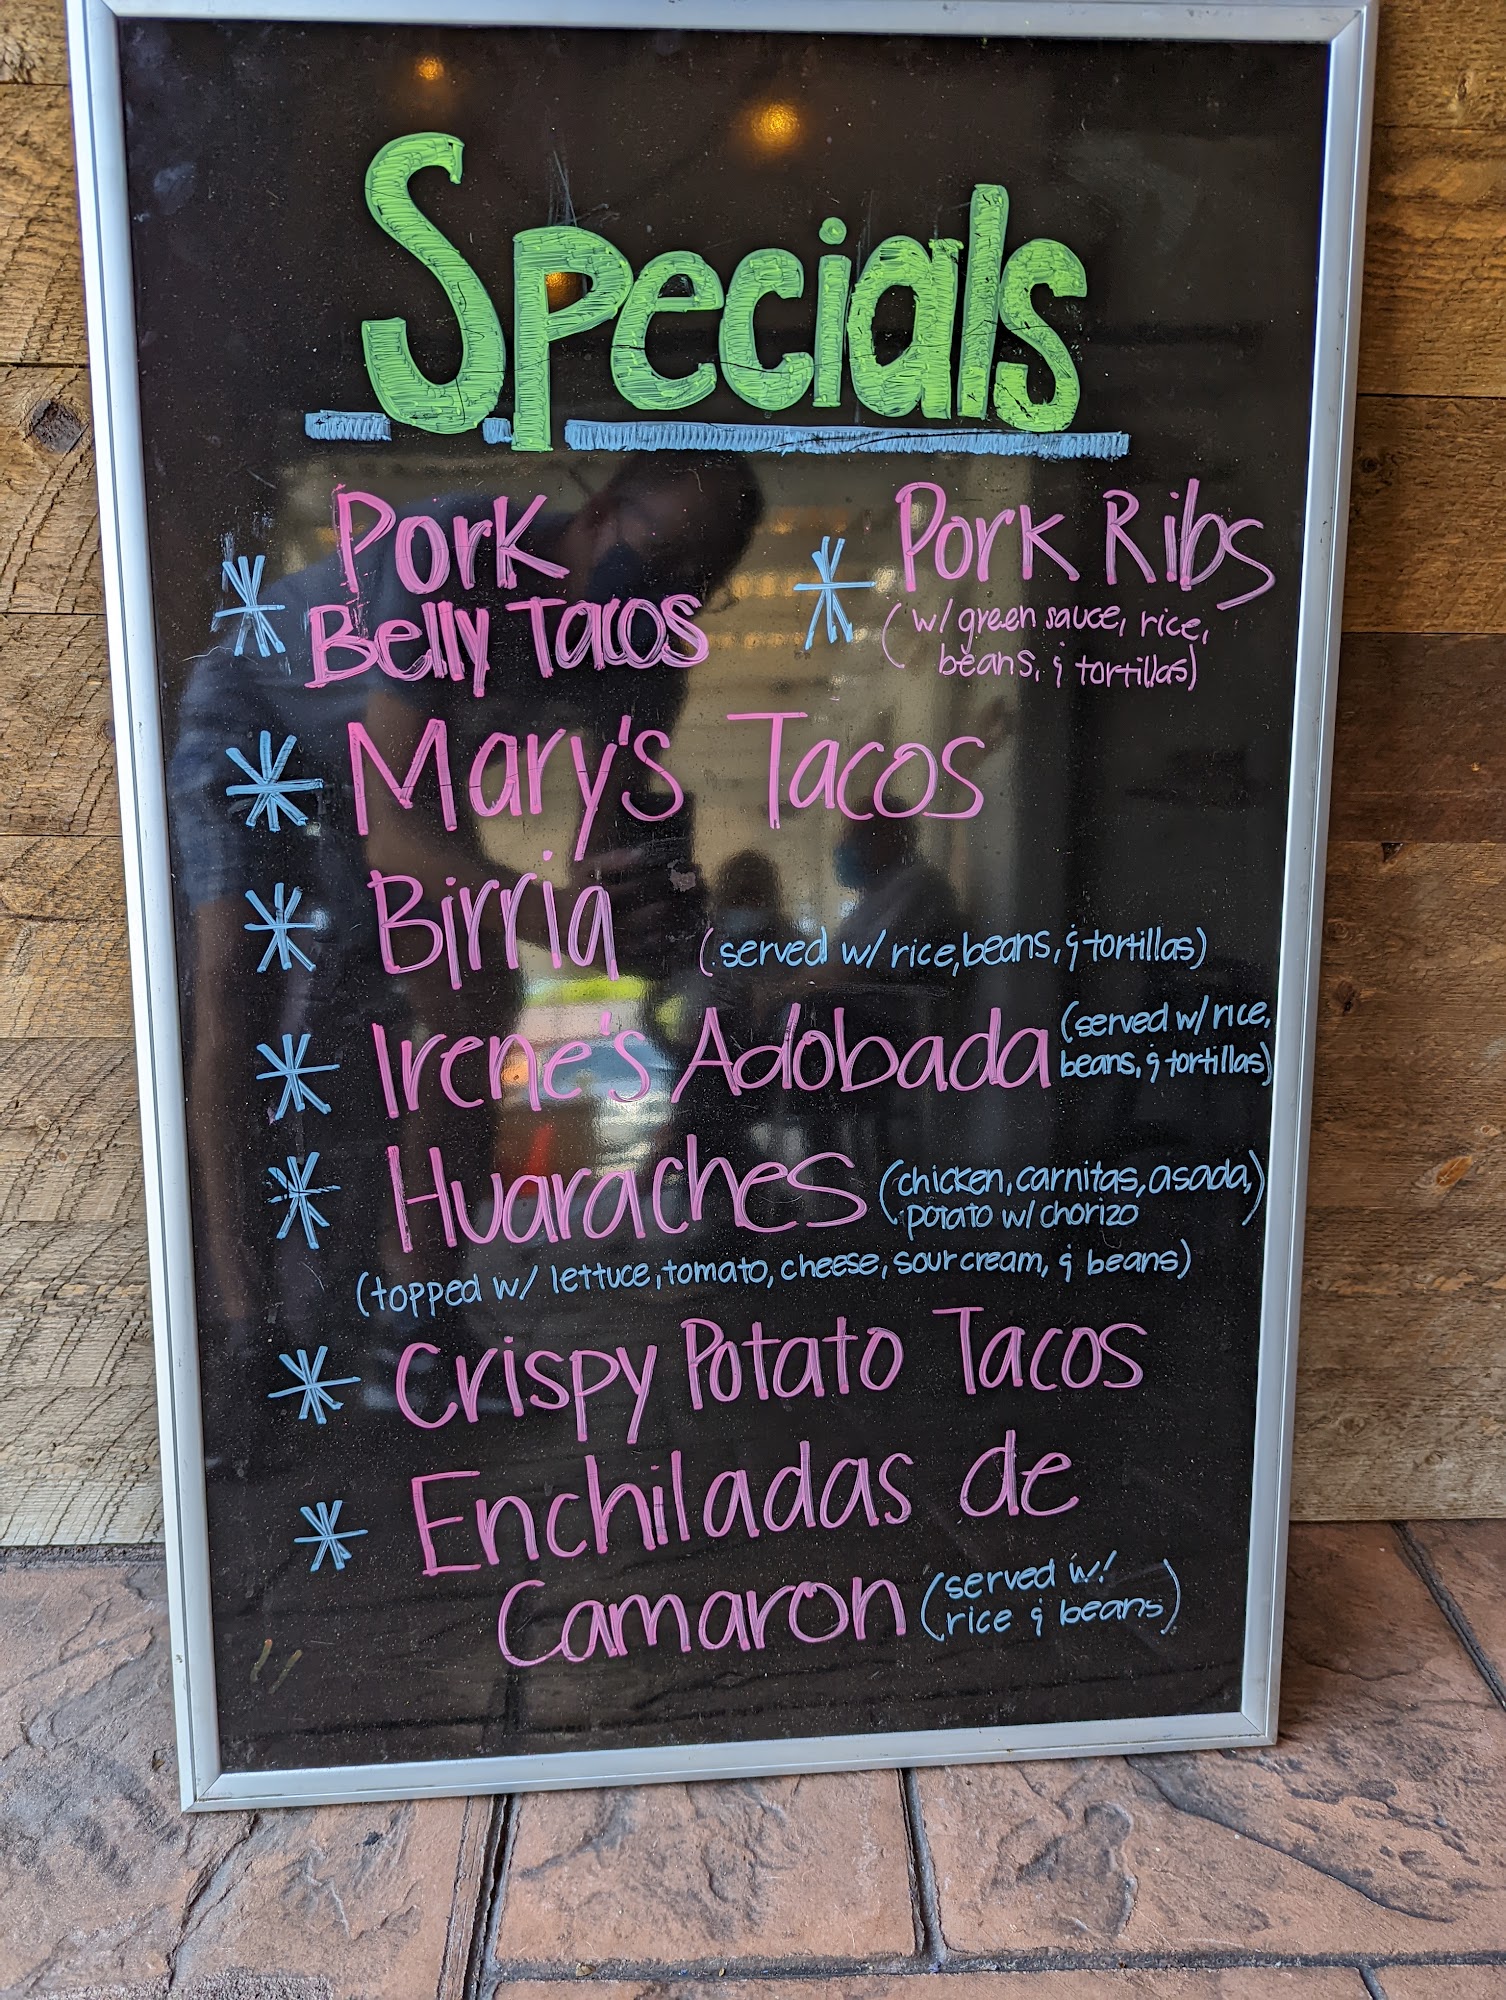 Specials
Pork
Belly Tacos
Pork Ribs
(w/ green sauce, rice,
beans, & tortillas)
Mary's Tacos
Birria (served w/ rice, beans, & tortillas)
Irene's Adobada (served w/ rice,
beans, & tortillas)
Huaraches (chicken, carnitas, asada,
potato w/ chorizo)
(topped w/ lettuce, tomato, cheese, sour cream, & beans)
Crispy Potato Tacos
Enchiladas de
Camaron (served w/
rice & beans)